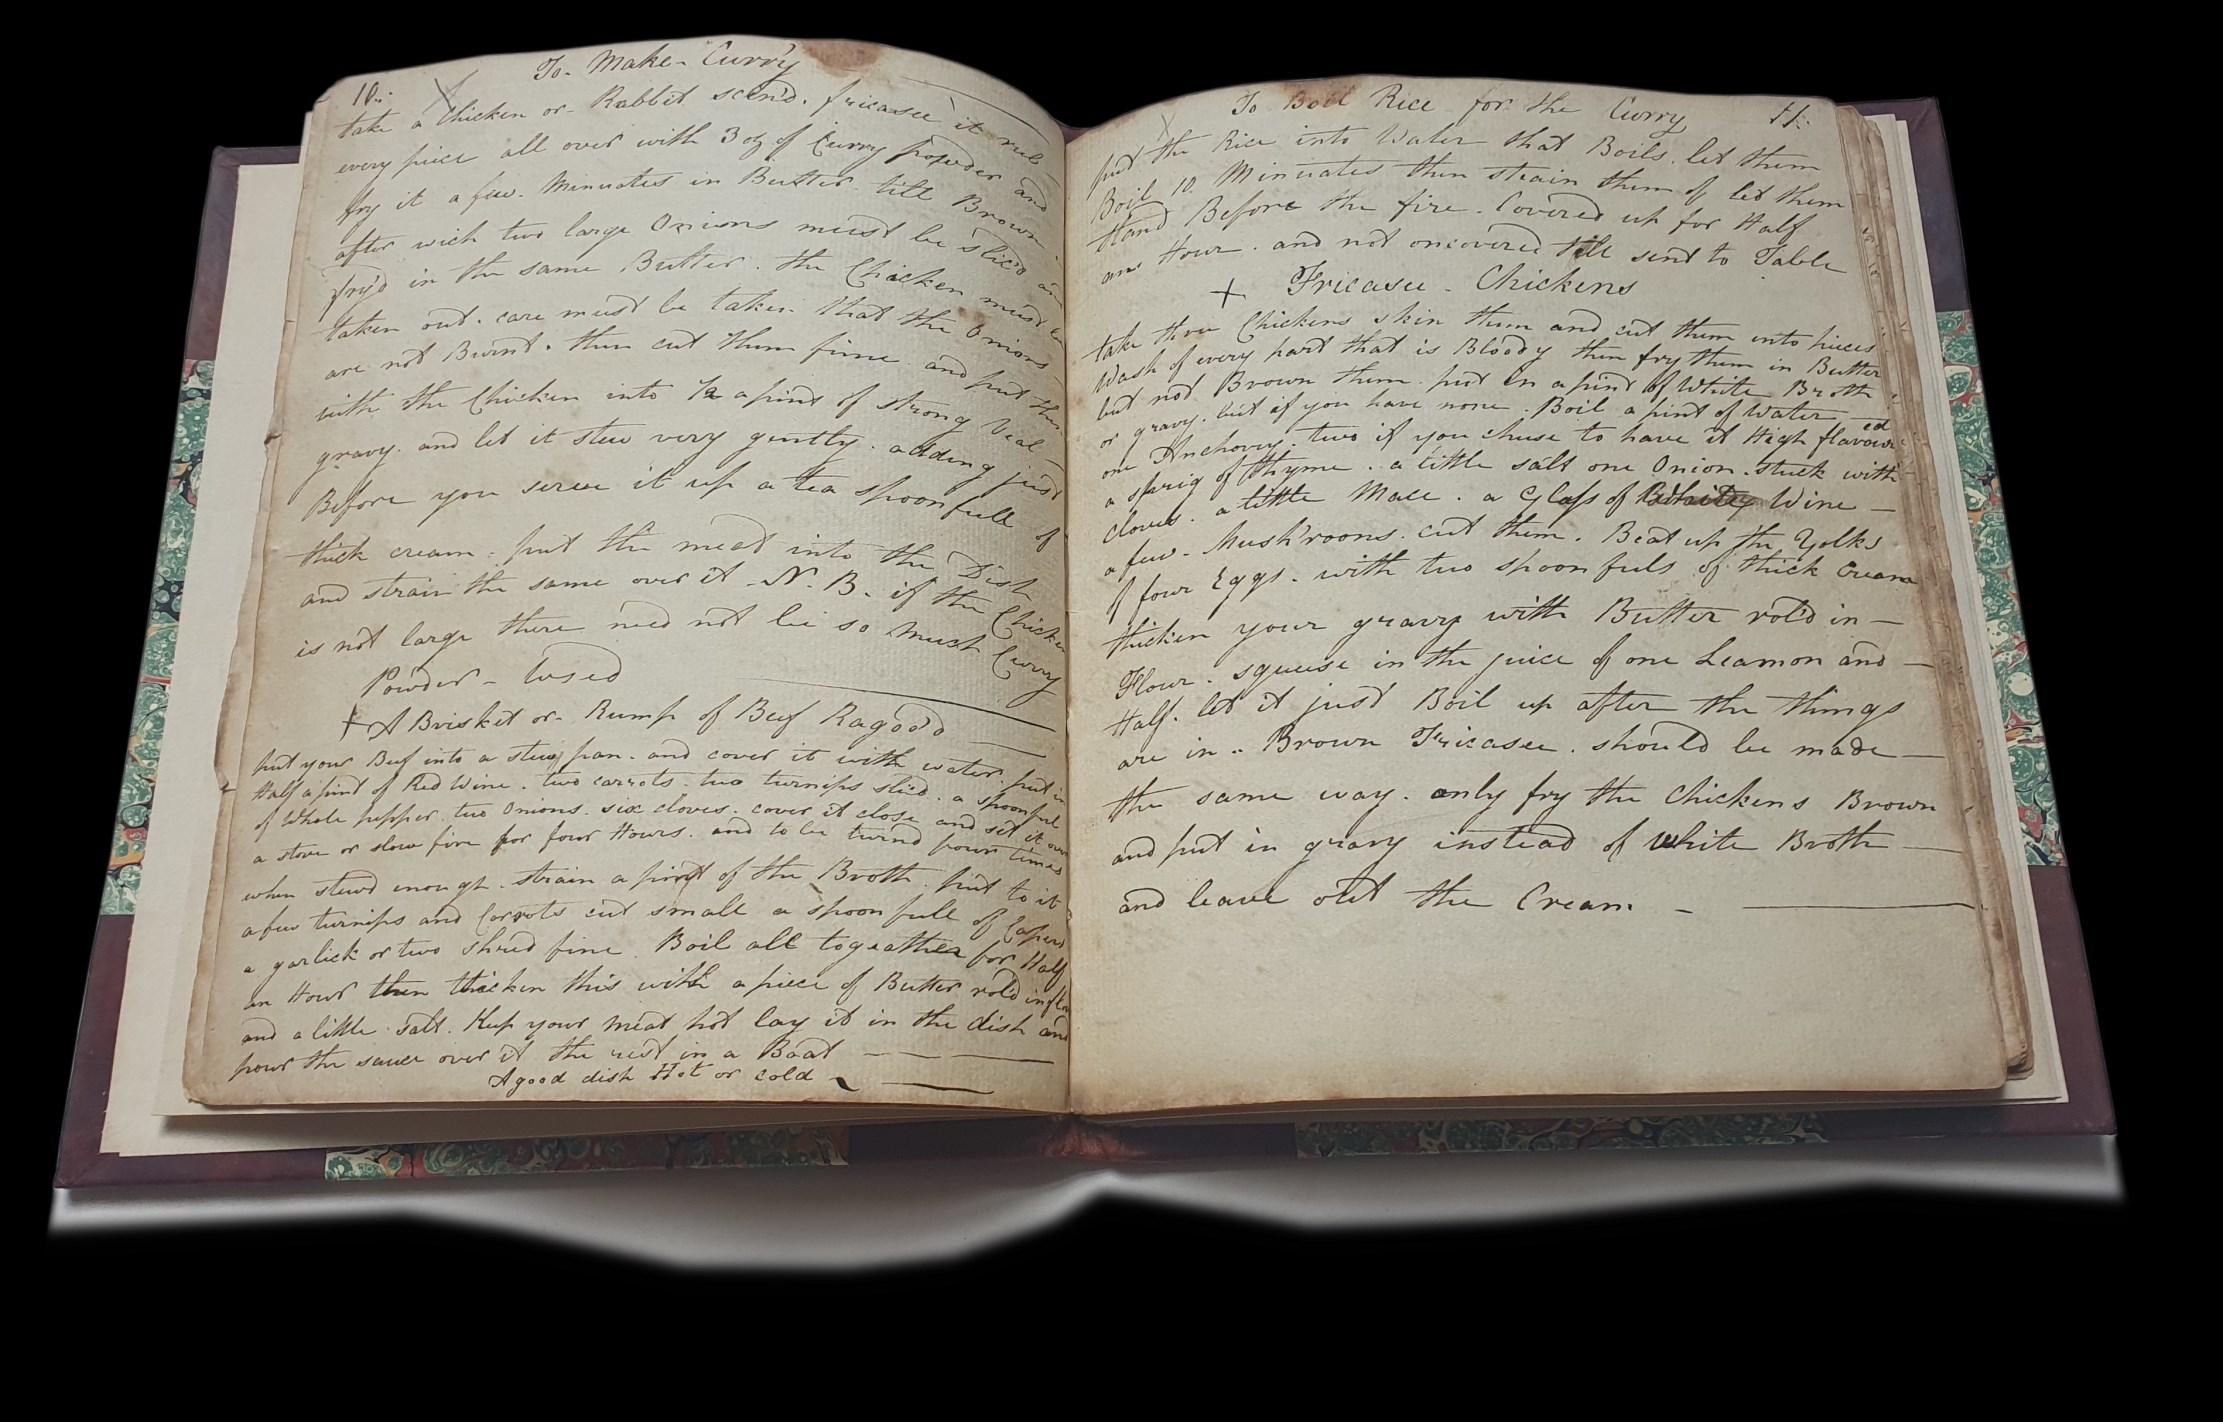 To Make Curry
10
take a Chicken or Rabbit fricasee it rub
every piece all over with 3 oz of Curry powder and
fry it a few Minuates in Butter till Brown
after wich two large Onions must be slic'd and
fry'd in the same Butter. the Chicken must be
taken out. care must be taken that the Onions
are not Burnt. then cut them fine and put them
with the Chicken into 1/2 a pint of strong Veal
gravy. and let it stew very gently. adding just
Before you serve it up a tea spoon full of
thick cream. put the meat into the Dish
and strain the same over it. N.B. if the Chicken
is not large there need not be so much Curry
Powder Used
+ A Brisket or Rump of Beef Ragood
put your Beef into a stew pan. and cover it with water. put in
Half a pint of Red Wine. two carrots. two turnips slic'd. a spoonful
of Whole pepper. two Onions. six cloves. cover it close and set it over
a stove or slow fire for four Hours. and to be turnd times
when stewd enough. strain a pint of the Broth put to it
a few turnips and Carrots cut small a spoon full of Capers
a garlick or two shred fine. Boil all togeather for Half
an Hour then thicken this with a piece of Butter rol'd in
and a little salt. Keep your meat hot lay it in the dish and
pour the sauce over it the rest in a Boat
A good dish Hot or cold
To Boil Rice for the Curry
11
put the Rice into Water that Boils. let them
Boil 10 Minuates then strain them of let them
stand Before the fire. Covered up for Half
an Hour. and not oncovered till sent to Table
+ Fricasee Chickens
take three Chickens skin them and cut them into pieces
Wash of every part that is Bloody then fry them in Butter
but not Brown them. put in a pint of White Broth
or gravy. but if you have none. Boil a pint of Water
one Anchovy. two if you chuse to have it High flavoured
a sprig of thyme. a little salt one Onion. stuck with
cloves. a little Mace. a Glass of White Wine
a few Mush'rooms. cut them. Beat up the Yolks
of four Eggs. with two spoon fuls of thick Cream
thicken your gravy with Butter rol'd in
Flour. squeese in the juice of one Leamon and
Half. let it just Boil up after the things
are in. Brown Fricasee. should be made
the same way. only fry the Chickens Brown
and put in gravy instead of White Broth
and leave out the Cream.